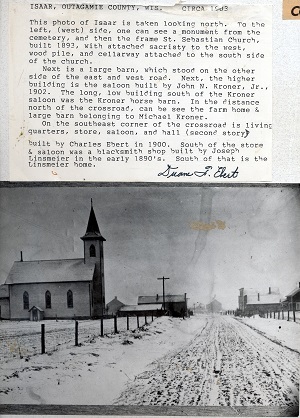 ISAAR, OUTAGAMIE COUNTY, WIS. CIRCA 1903
This photo of Isaar is taken looking north. To the
left, (west) side, one can see a monument from the
cemetery, and then the frame St. Sebastian Church,
built 1893, with attached sacristy to the west,
wood pile, and cellarway attached to the south side
of the church.
Next is a large barn, which stood on the other
side of the east and west road. Next, the higher
building is the saloon built by John N. Kroner, Jr.,
1902. The long, low building south of the Kroner
saloon was the Kroner horse barn. In the distance
north of the crossroad, can be see the farm home &
large barn belonging to Michael Kroner.
On the southeast corner of the crossroad is living
quarters, store, saloon, and hall (second story)
built by Charles Ebert in 1900. South of the store
& saloon was a blacksmith shop built by Joseph
Linsmeier in the early 1890's. South of that is the
Linsmeier home.
Duane F. Ebert